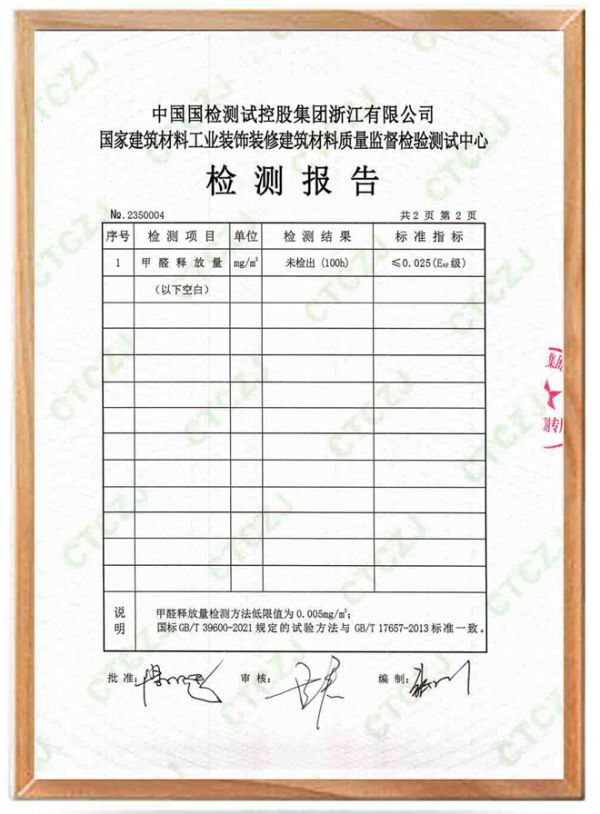 中国国检测试控股集团浙江有限公司
国家建筑材料工业装饰装修建筑材料质量监督检验测试中心
检测报告
№.2350004 共2页 第2页
序号 检测项目 单位 检测结果 标准指标
1 甲醛释放量 mg/m³ 未检出(100h) ≤0.025(ENF级)
(以下空白)
说明
甲醛释放量检测方法低限值为0.005mg/m³；
国标GB/T 39600-2021规定的试验方法与GB/T 17657-2013标准一致。
批准: 审核: 编制:
集团
测专用
CTCZJ